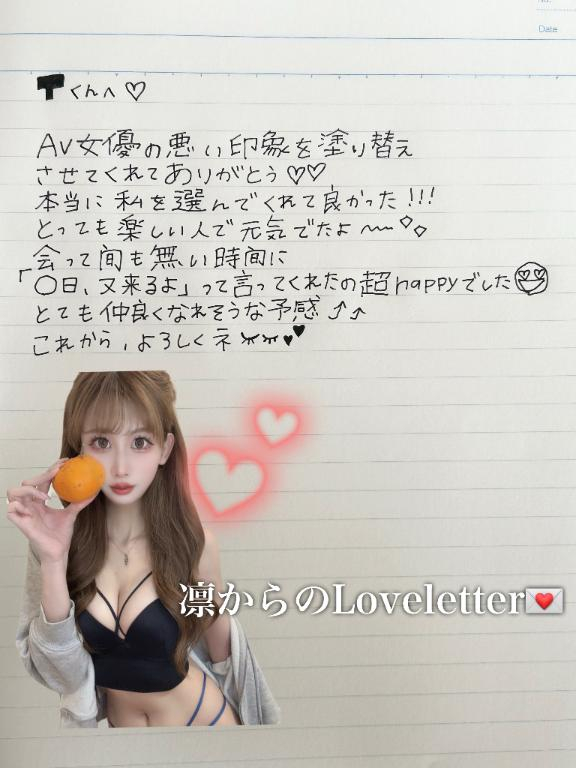 No.
Date
Tくんへ♡
AV女優の悪い印象を塗り替え
させてくれてありがとう♡♡
本当に私を選んでくれて良かった!!!
とっても楽しい人で元気でたよ〰◇◇
会って間も無い時間に
「〇日、又来るよ」って言ってくれたの超happyでした😍
とても仲良くなれそうな予感⤴⤴
これから、よろしくネ♥♥
凛からのLoveletter💌